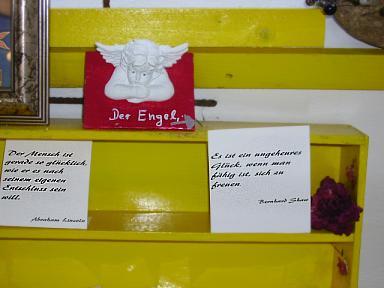 Der Engel,
Der Mensch ist
gerade so glücklich,
wie er es nach
seinem eigenen
Entschluss sein
will.
Abraham Lincoln
Es ist ein ungeheures
Glück, wenn man
fähig ist, sich zu
freuen.
Bernhard Shaw